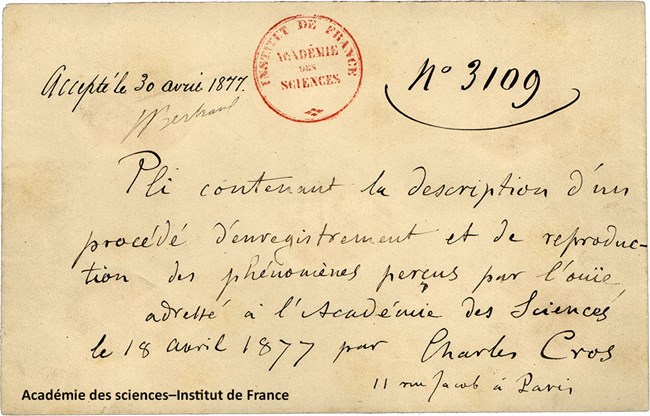 Accepté le 30 avril 1877.
JBertrand
INSTITUT DE FRANCE
ACADÉMIE
DES
SCIENCES
N° 3109
Pli contenant la description d'un
procédé d'enregistrement et de reproduc-
tion des phénomènes perçus par l'ouïe
adressé à l'Académie des Sciences
le 18 avril 1877 par Charles Cros
11 rue Jacob à Paris
Académie des sciences–Institut de France